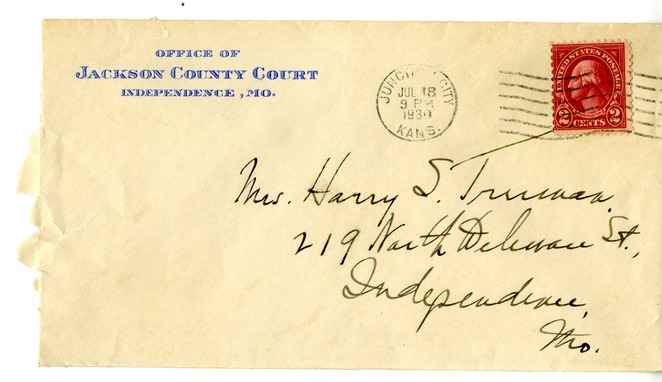 OFFICE OF
JACKSON COUNTY COURT
INDEPENDENCE, MO.
JUNCTION CITY
JUL 18
9 PM
1930
KANS.
UNITED STATES POSTAGE
2 CENTS 2
Mrs. Harry S. Truman,
219 North Delaware St.,
Independence,
Mo.